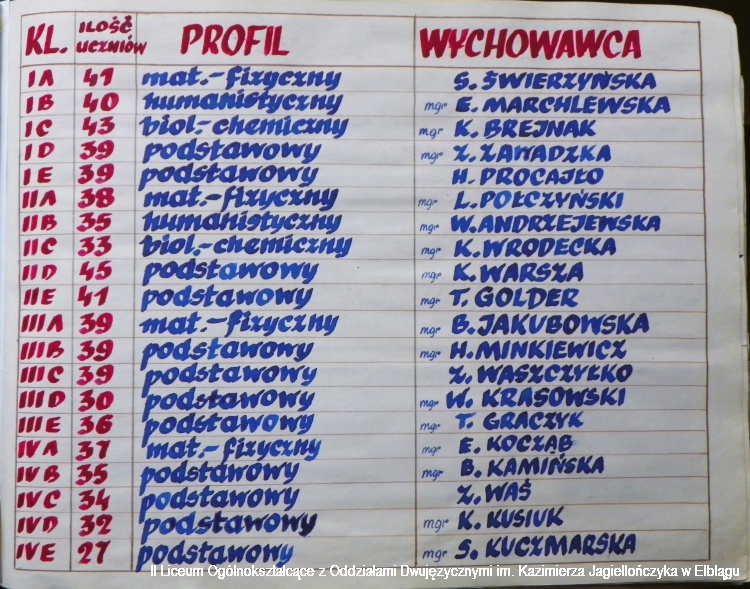 KL. ILOŚĆ UCZNIÓW PROFIL WYCHOWAWCA
I A 41 mat.-fizyczny S. ŚWIERZYŃSKA
I B 40 humanistyczny mgr E. MARCHLEWSKA
I C 43 biol.-chemiczny mgr K. BREJNAK
I D 39 podstawowy mgr Z. ZAWADZKA
I E 39 podstawowy H. PROCAJŁO
II A 38 mat.-fizyczny mgr L. POŁCZYŃSKI
II B 35 humanistyczny mgr W. ANDRZEJEWSKA
II C 33 biol.-chemiczny mgr K. WRODECKA
II D 45 podstawowy mgr K. WARSZA
II E 41 podstawowy mgr T. GOLDER
III A 39 mat.-fizyczny mgr B. JAKUBOWSKA
III B 39 podstawowy mgr H. MINKIEWICZ
III C 39 podstawowy Z. WASZCZYŁKO
III D 30 podstawowy mgr W. KRASOWSKI
III E 36 podstawowy mgr T. GRACZYK
IV A 37 mat.-fizyczny mgr E. KOCZĄB
IV B 35 podstawowy mgr B. KAMIŃSKA
IV C 34 podstawowy Z. WAŚ
IV D 32 podstawowy mgr K. KUSIUK
IV E 27 podstawowy mgr S. KUCZMARSKA
II Liceum Ogólnokształcące z Oddziałami Dwujęzycznymi im. Kazimierza Jagiellończyka w Elblągu